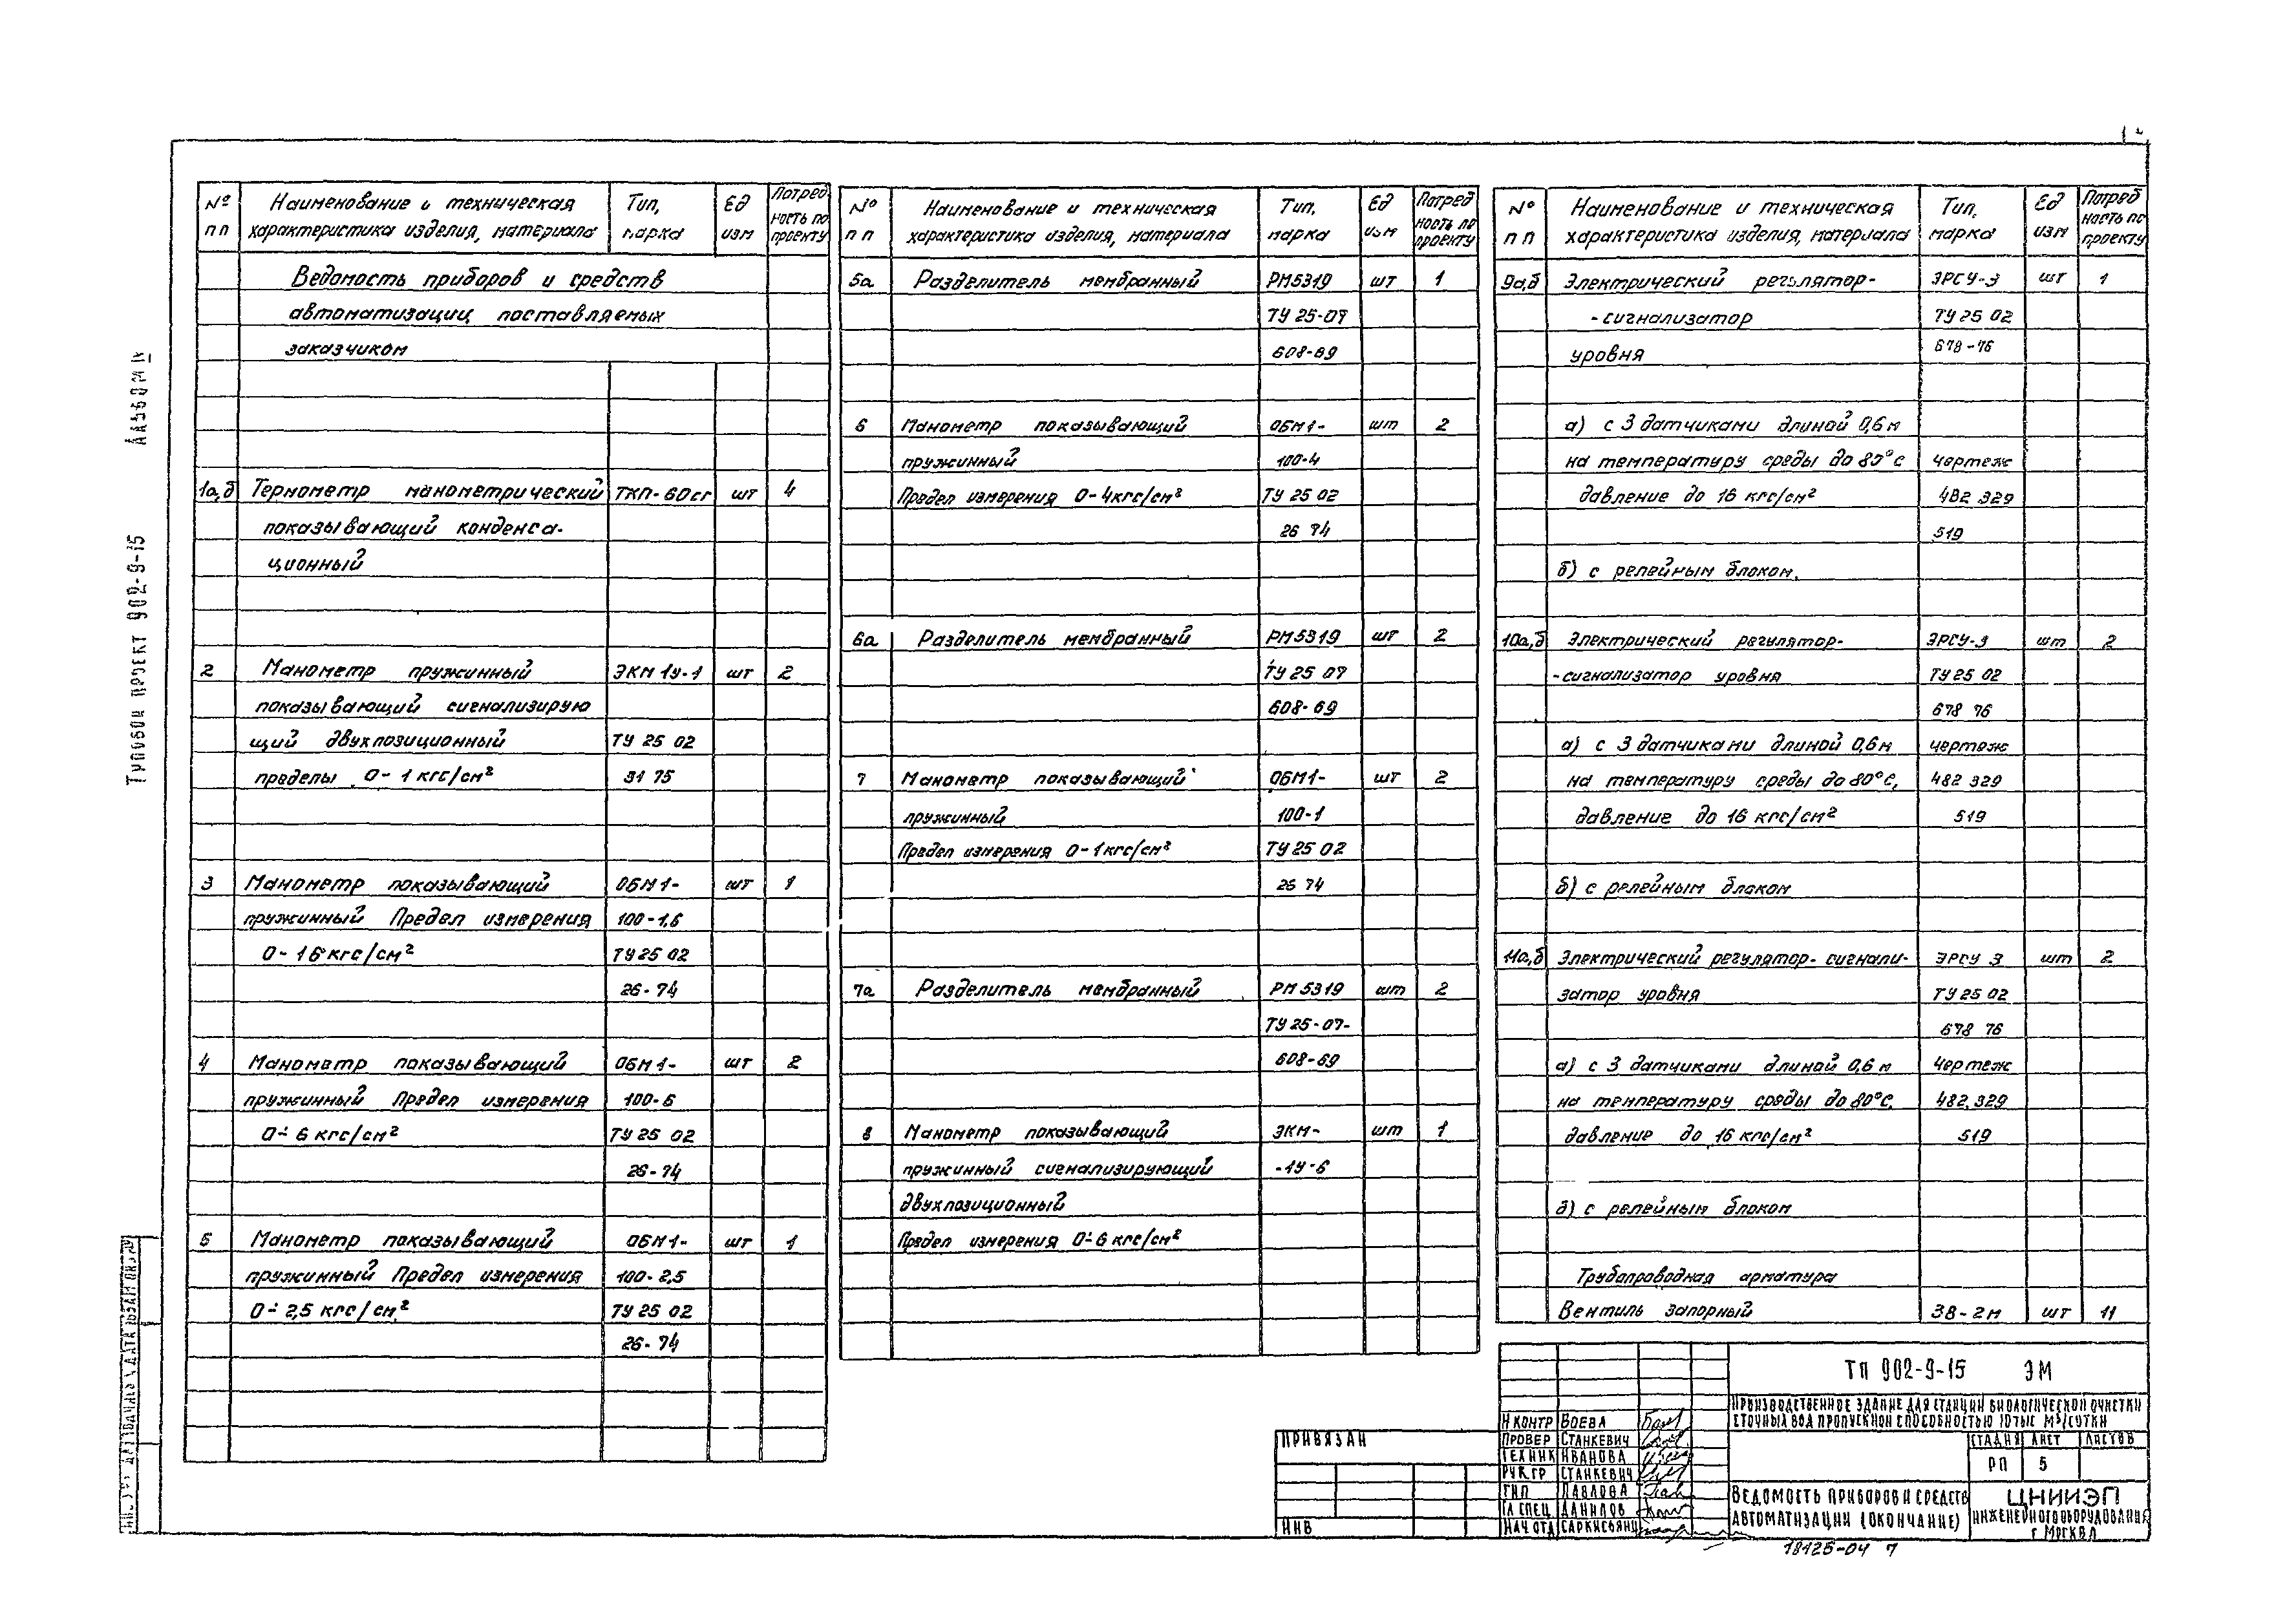 № пп | Наименование и техническая характеристика изделия, материала | Тип, марка | Ед изм | Потребность по проекту
Ведомость приборов и средств
автоматизации поставляемых
заказчиком
1а,б Термометр манометрический ТКП-60сг шт 4
показывающий конденса-
ционный
2 Манометр пружинный ЭКМ 1У-1 шт 2
показывающий сигнализирую
щий двухпозиционный ТУ 25 02
пределы 0-1 кгс/см² 31 75
3 Манометр показывающий ОБМ 1- шт 1
пружинный Предел измерения 100-1,6
0-16 кгс/см² ТУ 25 02
26-74
4 Манометр показывающий ОБМ 1- шт 2
пружинный Предел измерения 100-6
0÷6 кгс/см² ТУ 25 02
26-74
5 Манометр показывающий ОБМ 1- шт 1
пружинный Предел измерения 100-2,5
0÷2,5 кгс/см² ТУ 25 02
26-74
№ пп | Наименование и техническая характеристика изделия, материала | Тип, марка | Ед изм | Потребность по проекту
5а Разделитель мембранный РМ5319 шт 1
ТУ 25-07
608-69
6 Манометр показывающий ОБМ1- шт 2
пружинный 100-4
Предел измерения 0-4кгс/см² ТУ 25 02
26 74
6а Разделитель мембранный РМ 5319 шт 2
ТУ 25 07
608-69
7 Манометр показывающий ОБМ1- шт 2
пружинный 100-1
Предел измерения 0-1кгс/см² ТУ 25 02
26 74
7а Разделитель мембранный РМ 5319 шт 2
ТУ 25-07-
608-69
8 Манометр показывающий ЭКМ- шт 1
пружинный сигнализирующий -1У-6
двухпозиционный
Предел измерения 0÷6 кгс/см²
№ пп | Наименование и техническая характеристика изделия, материала | Тип, марка | Ед изм | Потребность по проекту
9а,б Электрический регулятор- ЭРСУ-3 шт 1
-сигнализатор ТУ 25 02
уровня 678-76
а) с 3 датчиками длиной 0,6 м
на температуру среды до 80°с чертеж
давление до 16 кгс/см² 482 329
519
б) с релейным блоком.
10а,б Электрический регулятор- ЭРСУ-3 шт 2
-сигнализатор уровня ТУ 25 02
678 76
а) с 3 датчиками длиной 0,6 м чертеж
на температуру среды до 80°С, 482 329
давление до 16 кгс/см² 519
б) с релейным блоком
11а,б Электрический регулятор-сигнали- ЭРСУ 3 шт 2
затор уровня ТУ 25 02
678 76
а) с 3 датчиками длиной 0,6 м Чертеж
на температуру среды до 80°С, 482.329
давление до 16 кгс/см² 519
б) с релейным блоком
Трубопроводная арматура
Вентиль запорный 38-2м шт 11
Типовой проект 902-9-15 Альбом IV
Привязан
Инв
Н контр Боева
Провер Станкевич
Техник Иванова
Рук.гр Станкевич
ГИП Павлова
Гл спец Данилов
Нач отд Саркисьянц
ТП 902-9-15 ЭМ
Производственное здание для станции биологической очистки
сточных вод пропускной способностью 10тыс м³/сутки
Стадия Лист Листов
РП 5
Ведомость приборов и средств
автоматизации (окончание)
ЦНИИЭП
инженерного оборудования
г Москва
18125-04 7